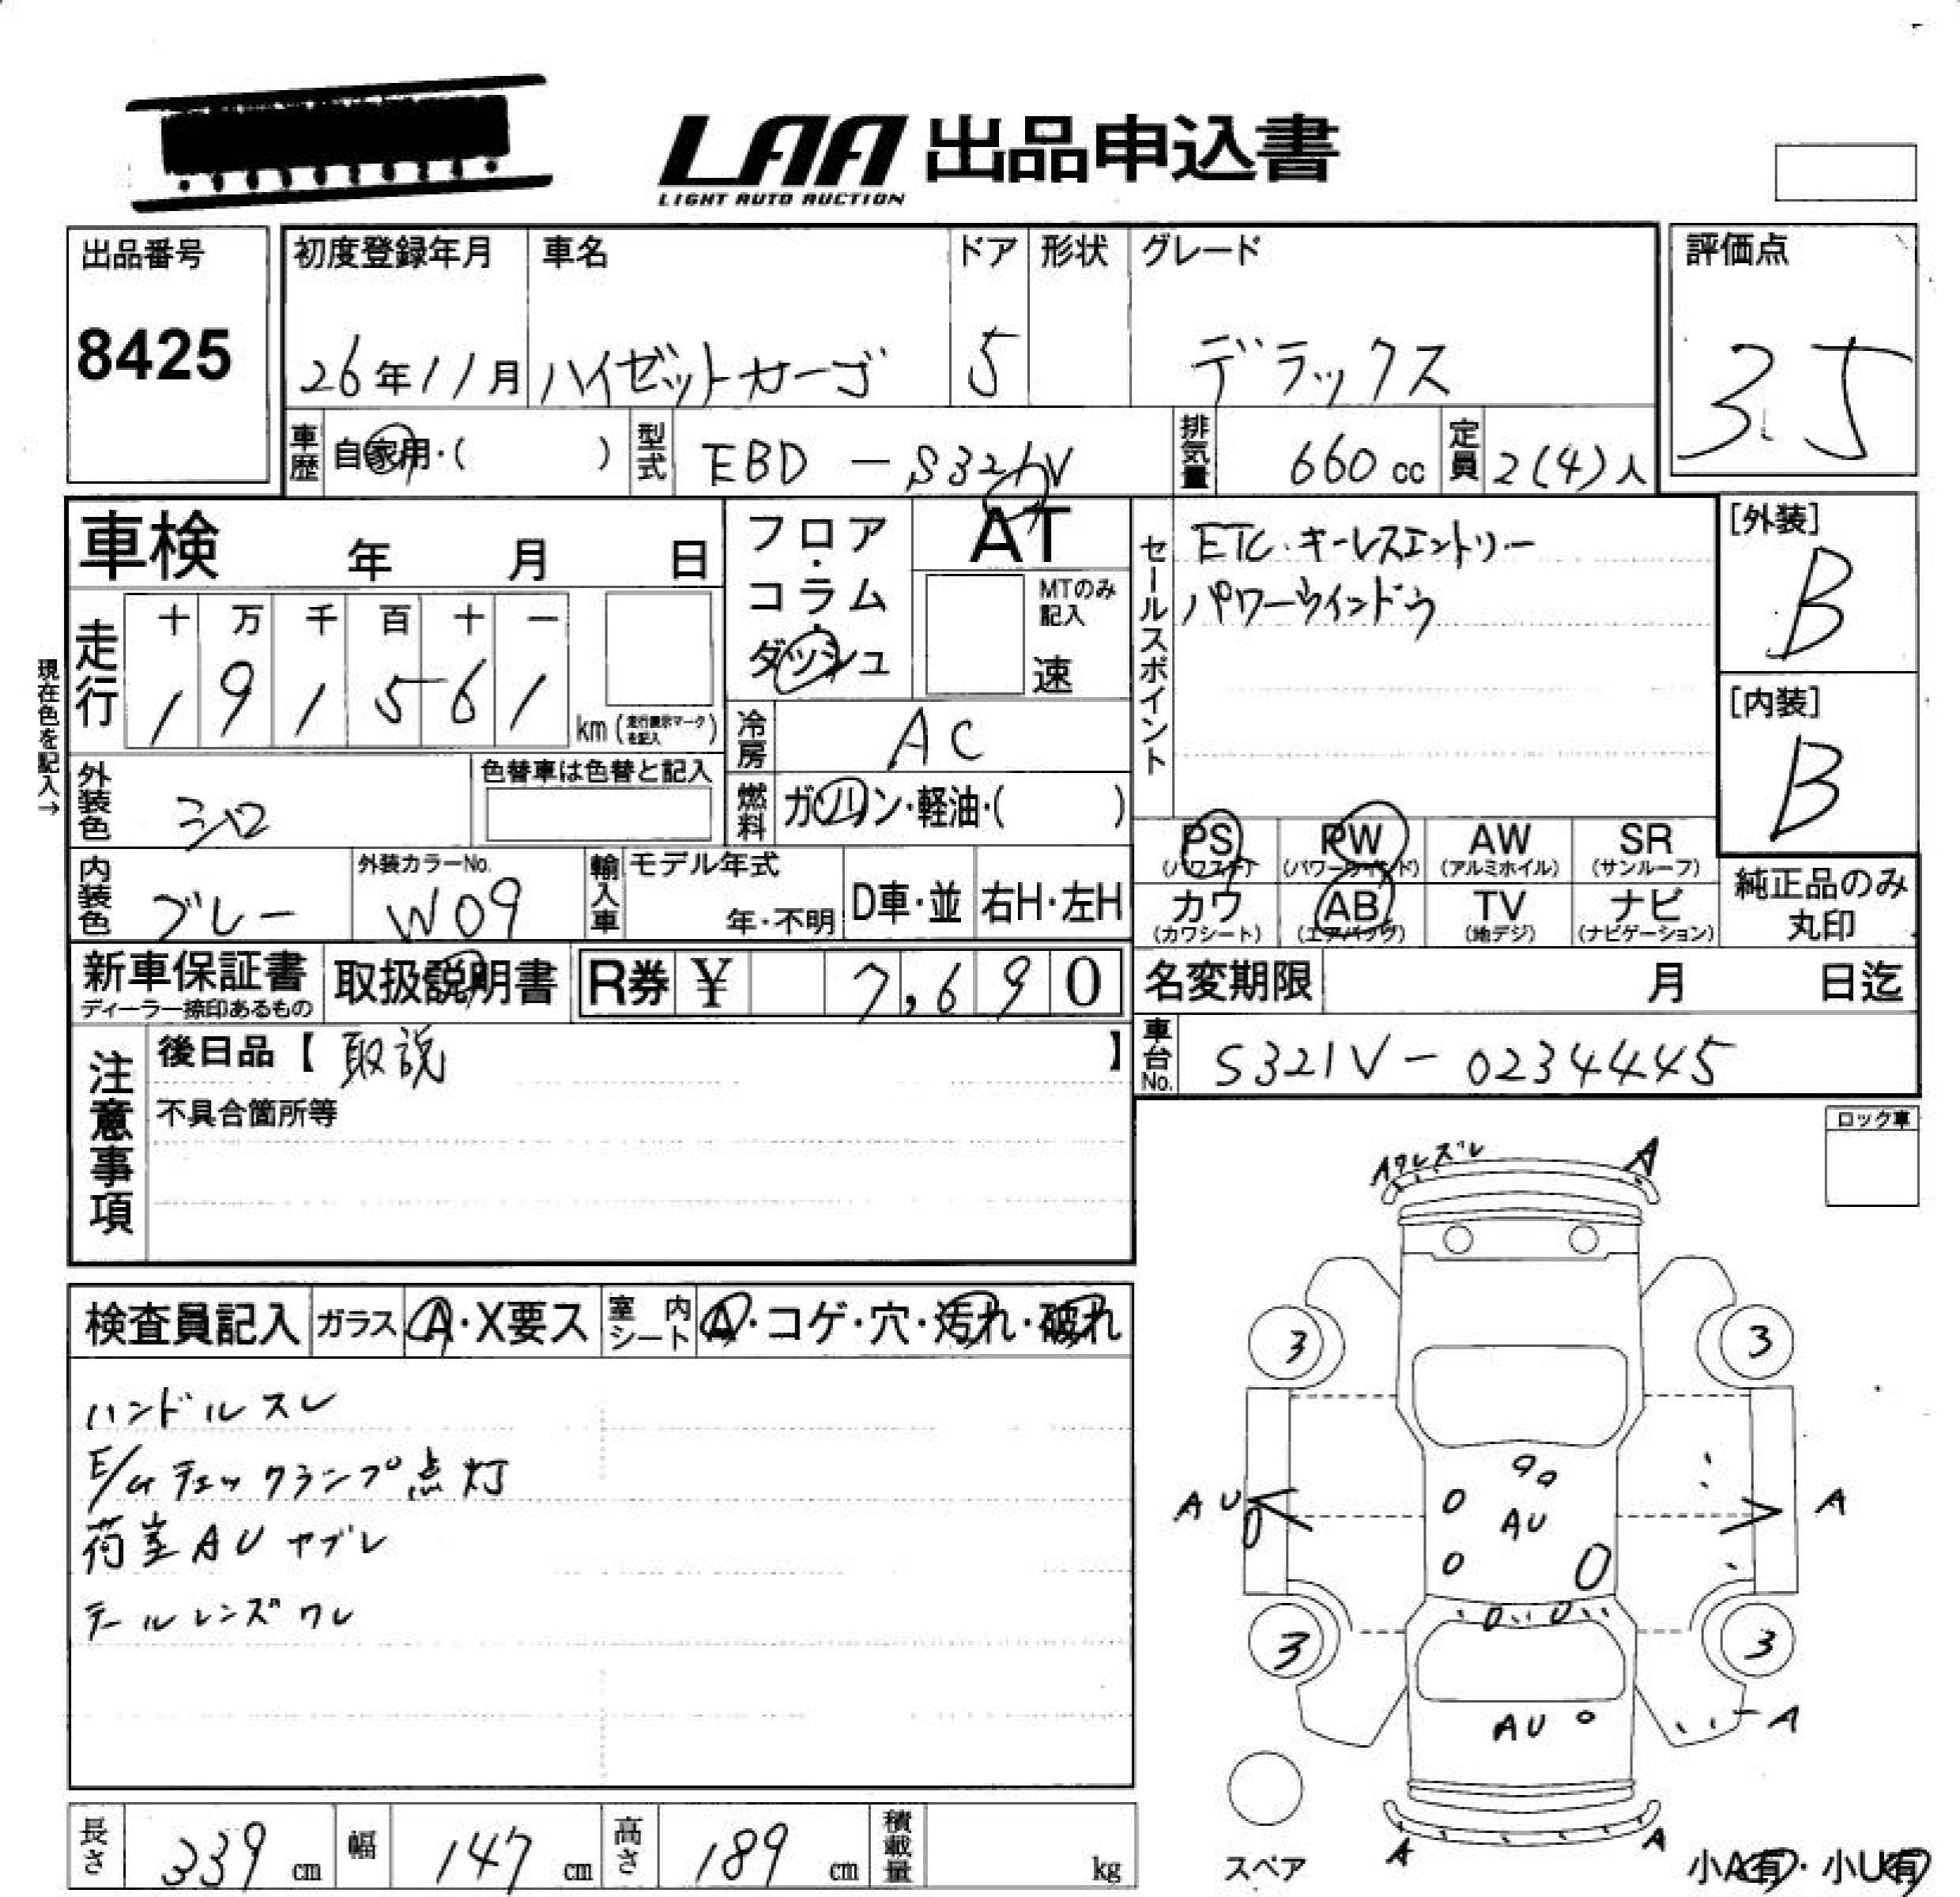 LAA 出品申込書
LIGHT AUTO AUCTION
出品番号
8425
初度登録年月 車名 ドア 形状 グレード
26年11月 ハイゼットカーゴ 5 デラックス
評価点
3.5
車歴 自家用・( ) 型式 EBD-S321V 排気量 660cc 定員 2(4)人
車検 年 月 日
フロア・コラム・ダッシュ
AT
MTのみ記入
速
セールスポイント
ETC・キーレスエントリー
パワーウインドゥ
[外装]
B
[内装]
B
現在色を記入→
走行
十 万 千 百 十 一
1 9 1 5 6 1 km (走行表示マークを記入)
冷房 AC
外装色 シロ
色替車は色替と記入
燃料 ガソリン・軽油・( )
PS PW AW SR
(パワステ) (パワーウインド) (アルミホイル) (サンルーフ)
カワ AB TV ナビ
(カワシート) (エアバッグ) (地デジ) (ナビゲーション)
純正品のみ
丸印
内装色 グレー
外装カラーNo.
W09
輸入車 モデル年式
年・不明 D車・並 右H・左H
新車保証書
ディーラー捺印あるもの
取扱説明書
R券 ¥ 7,690
名変期限 月 日迄
注意事項
後日品【 取説 】
車台No. S321V-0234445
不具合箇所等
ロック車
Aワレズレ A
検査員記入 ガラス A・X要ス 室内シート A・コゲ・穴・汚れ・破れ
3 3
ハンドルスレ
E/Gチェックランプ点灯
荷室AUヤブレ
テールレンズワレ
AU AU A
3 3
AU A
A A
スペア
小A有・小U有
長さ 339cm 幅 147cm 高さ 189cm 積載量 kg